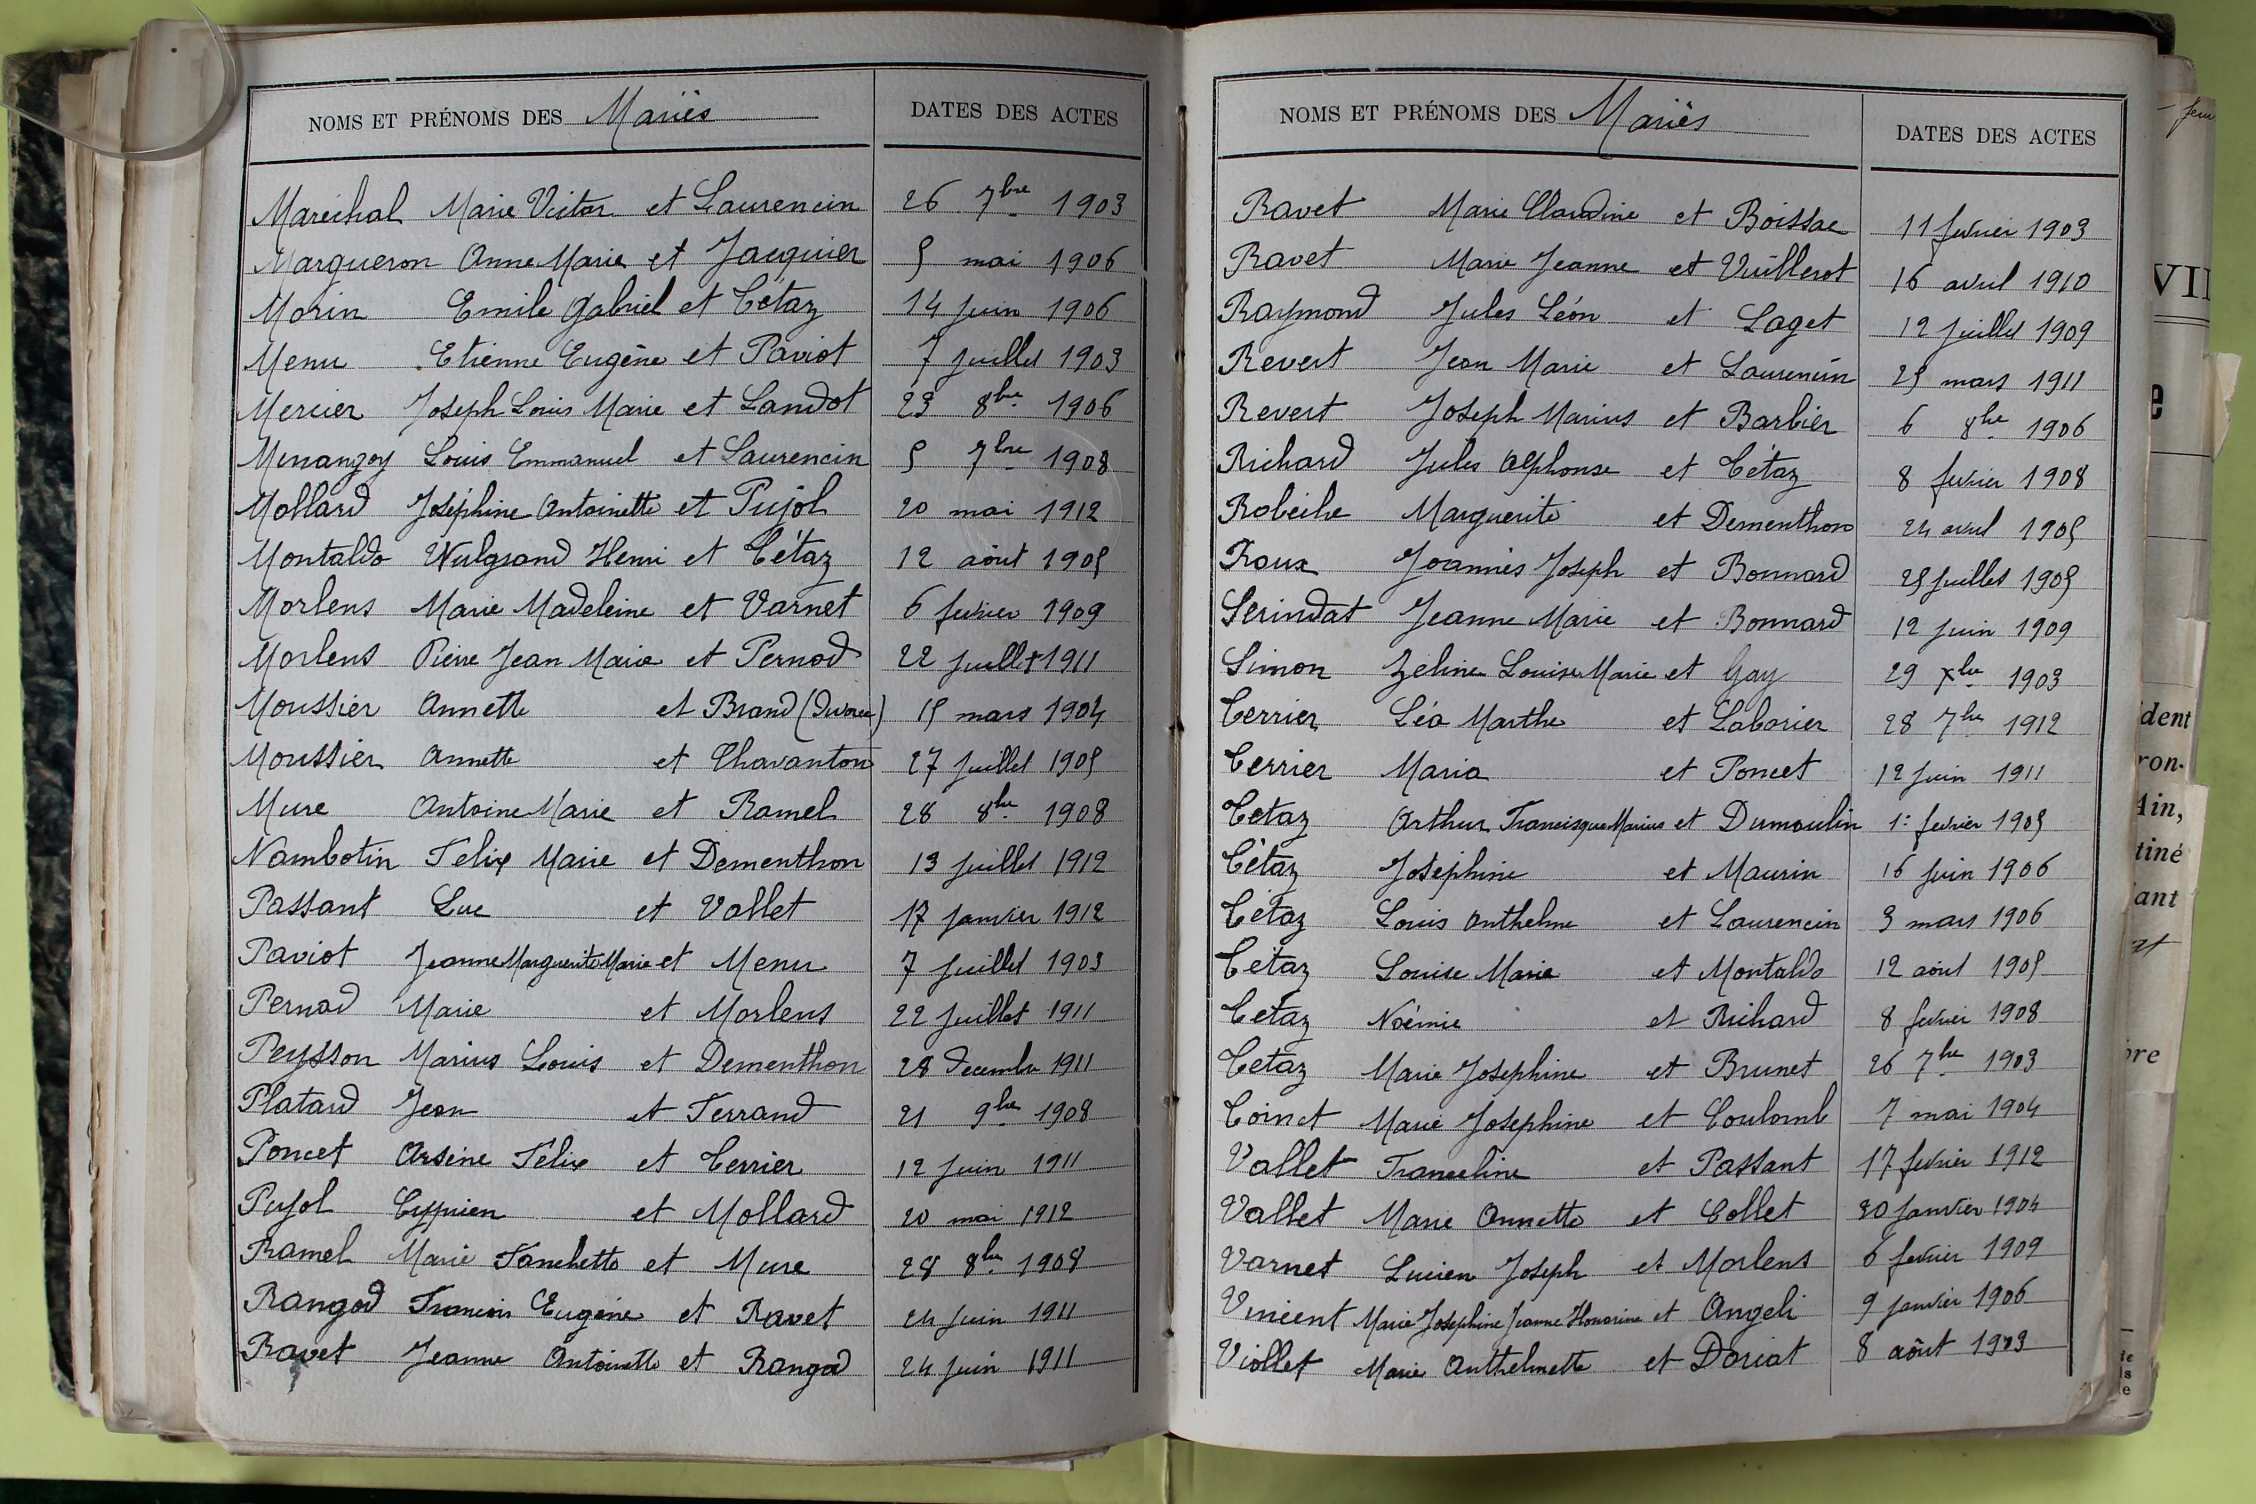 NOMS ET PRÉNOMS DES Mariés DATES DES ACTES
Maréchal Marie Victor et Laurencin 26 7bre 1903
Margueron Anne Marie et Jacquier 5 mai 1906
Morin Emile Gabriel et Tétaz 14 juin 1906
Menu Etienne Eugène et Paviot 7 juillet 1903
Mercier Joseph Louis Marie et Landot 23 8bre 1906
Menangoy Louis Emmanuel et Laurencin 5 7bre 1908
Mollard Joséphine Antoinette et Pujol 20 mai 1912
Montaldo Wulgrand Henri et Tétaz 12 août 1905
Morlens Marie Madeleine et Varnet 6 fevrier 1909
Morlens Pierre Jean Marie et Pernod 22 juillet 1911
Moussier Annette et Brand (Divorcée) 15 mars 1904
Moussier Annette et Chavanton 27 juillet 1905
Mure Antoine Marie et Ramel 28 8bre 1908
Nambotin Felix Marie et Dementhon 13 juillet 1912
Passant Luc et Vallet 17 janvier 1912
Paviot Jeanne Marguerite Marie et Menu 7 juillet 1903
Pernod Marie et Morlens 22 juillet 1911
Peysson Marius Louis et Dementhon 28 Decembre 1911
Platard Jean et Ferrand 21 9bre 1908
Poncet Arsène Félix et Terrier 12 juin 1911
Pujol Cyprien et Mollard 20 mai 1912
Ramel Marie Fanchette et Mure 28 8bre 1908
Rangod Francois Eugène et Ravet 24 juin 1911
Ravet Jeanne Antoinette et Rangod 24 juin 1911
NOMS ET PRÉNOMS DES Mariés DATES DES ACTES
Ravet Marie Claudine et Boissac 11 fevrier 1903
Ravet Marie Jeanne et Vuillerot 16 avril 1910
Raymond Jules Léon et Laget 12 juillet 1909
Revert Jean Marie et Laurencin 25 mars 1911
Revert Joseph Marius et Barbier 6 8bre 1906
Richard Jules Alphonse et Tétaz 8 fevrier 1908
Robeihe Marguerite et Dementhon 24 avril 1905
Roux Joannès Joseph et Bonnard 25 juillet 1905
Serindat Jeanne Marie et Bonnard 12 juin 1909
Simon Zeline Louise Marie et Gay 29 Xbre 1903
Terrier Léa Marthe et Laborier 28 7bre 1912
Terrier Maria et Poncet 12 juin 1911
Tétaz Arthur Francisque Marius et Dumoulin 1: fevrier 1905
Tétaz Joséphine et Maurin 16 juin 1906
Tétaz Louis Anthelme et Laurencin 3 mars 1906
Tétaz Louise Marie et Montaldo 12 août 1905
Tétaz Noémie et Richard 8 fevrier 1908
Tetaz Marie Joséphine et Brunet 26 7bre 1903
Toinet Marie Joséphine et Coulomb 7 mai 1904
Vallet Franceline et Passant 17 fevrier 1912
Vallet Marie Annette et Collet 30 janvier 1904
Varnet Lucien Joseph et Morlens 6 fevrier 1909
Vincent Marie Josephine Jeanne Honorine et Angeli 9 janvier 1906
Viollet Marie Anthelmette et Doriat 8 août 1903
VII
dent
ron-
Ain,
tiné
ant
bre